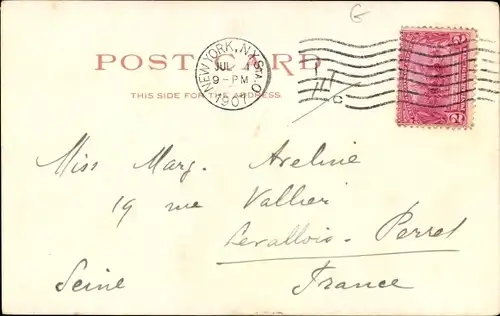 POST CARD
NEW YORK, N.Y. STA. O
JUL 1
9-PM
1901
THIS SIDE FOR THE ADDRESS.
T
C
2 2
Miss Marg. Aveline
19 rue Vallier
Levallois-Perret
Seine France